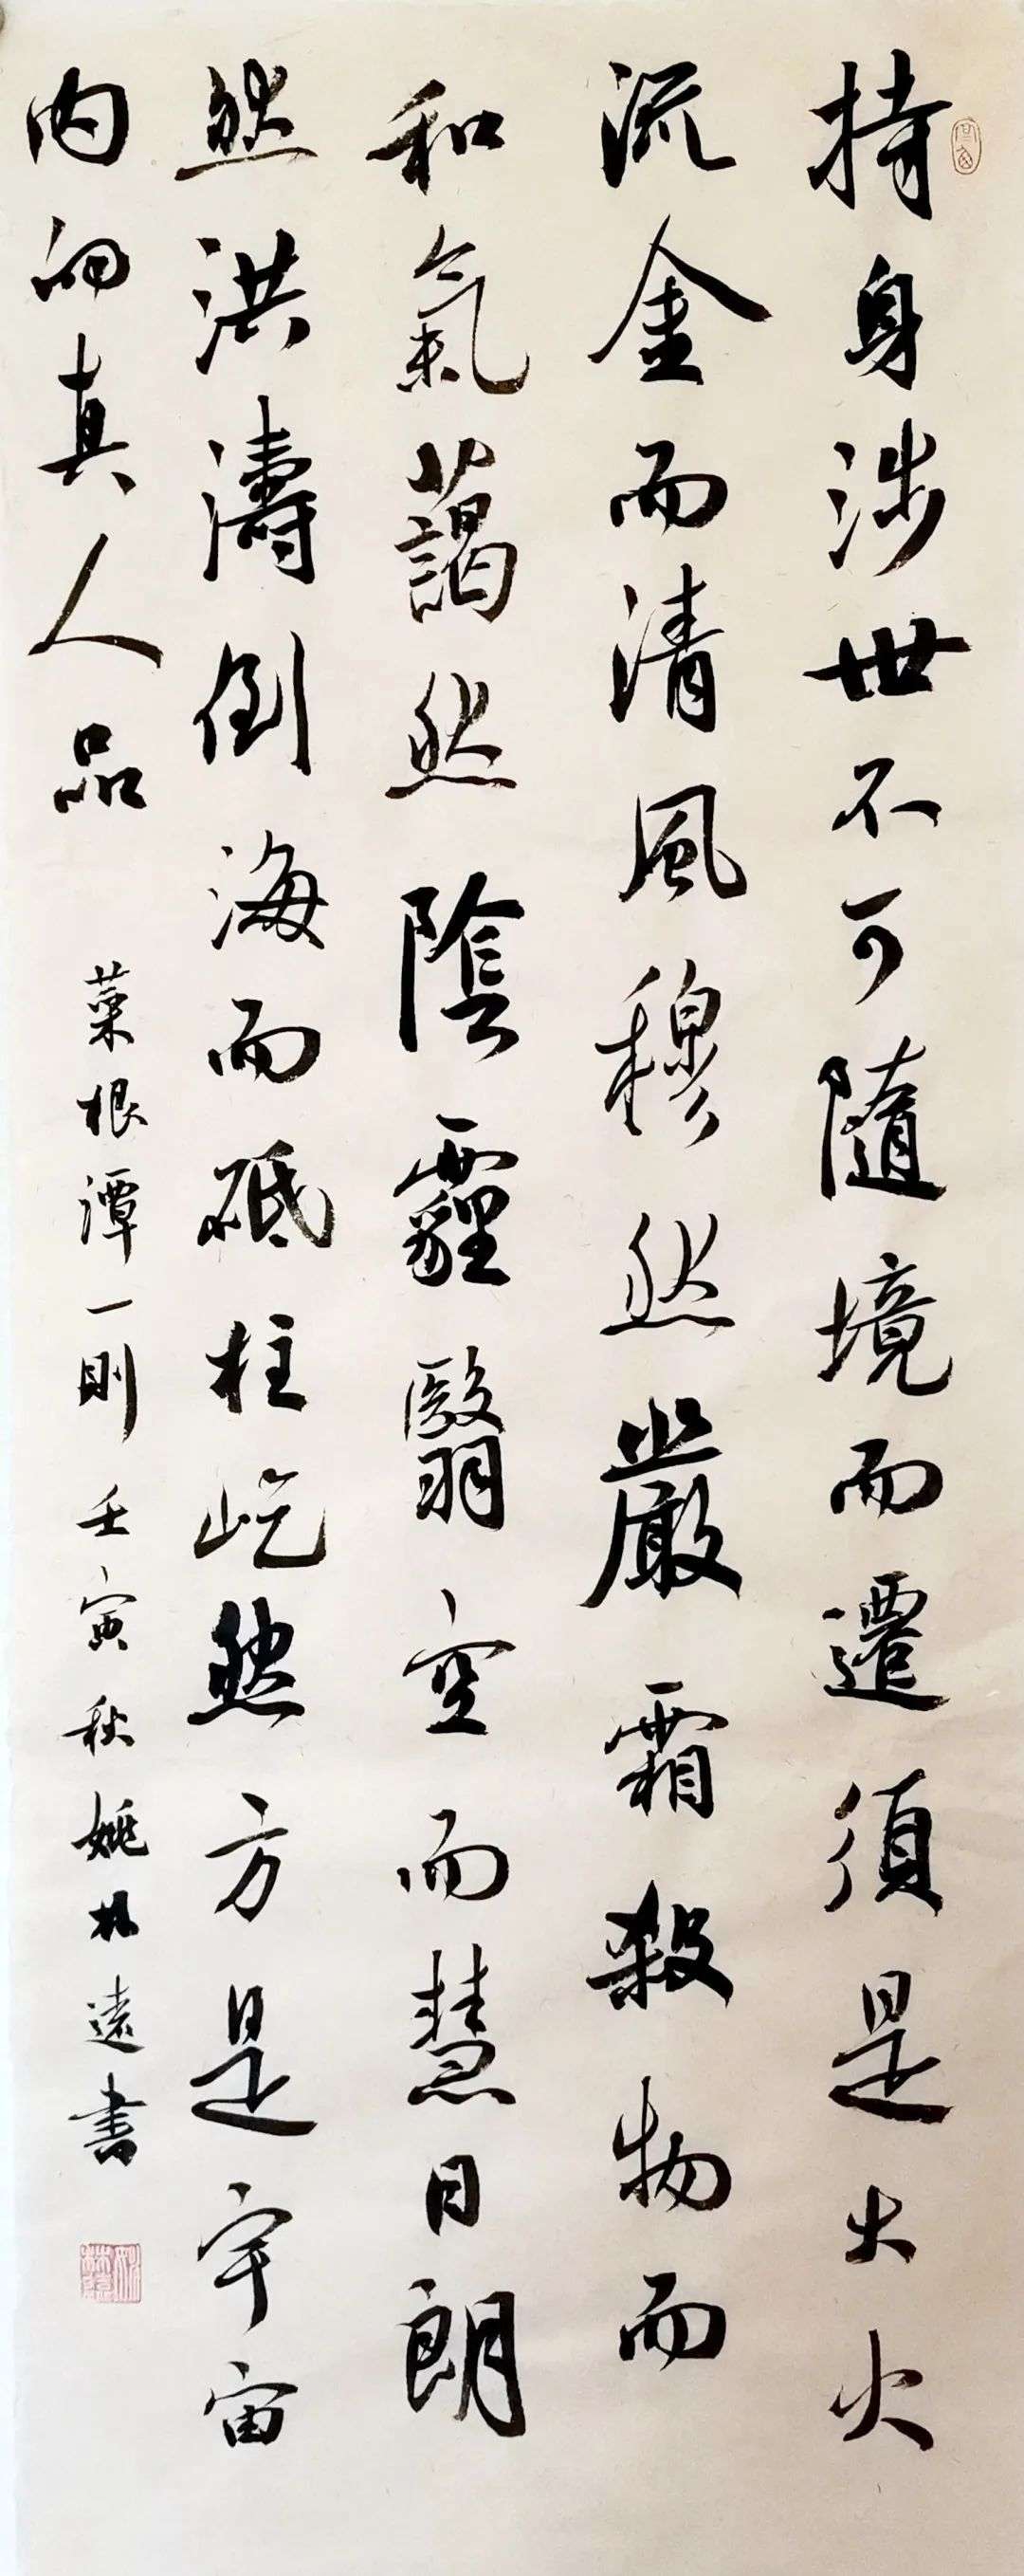 持身涉世不可隨境而遷須是大火
流金而清風穆然嚴霜殺物而
和氣藹然陰霾翳空而慧日朗
然洪濤倒海而砥柱屹然方是宇宙
内的真人品
菜根譚一則 壬寅秋 姚林遠書